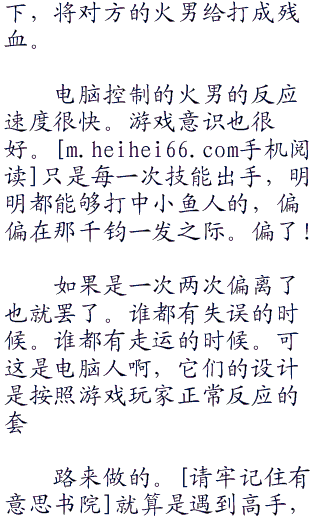 下，将对方的火男给打成残
血。
电脑控制的火男的反应
速度很快。游戏意识也很
好。[m.heihei66.com手机阅
读]只是每一次技能出手，明
明都能够打中小鱼人的，偏
偏在那千钧一发之际。偏了！
如果是一次两次偏离了
也就罢了。谁都有失误的时
候。谁都有走运的时候。可
这是电脑人啊，它们的设计
是按照游戏玩家正常反应的
套
路来做的。[请牢记住有
意思书院]就算是遇到高手，